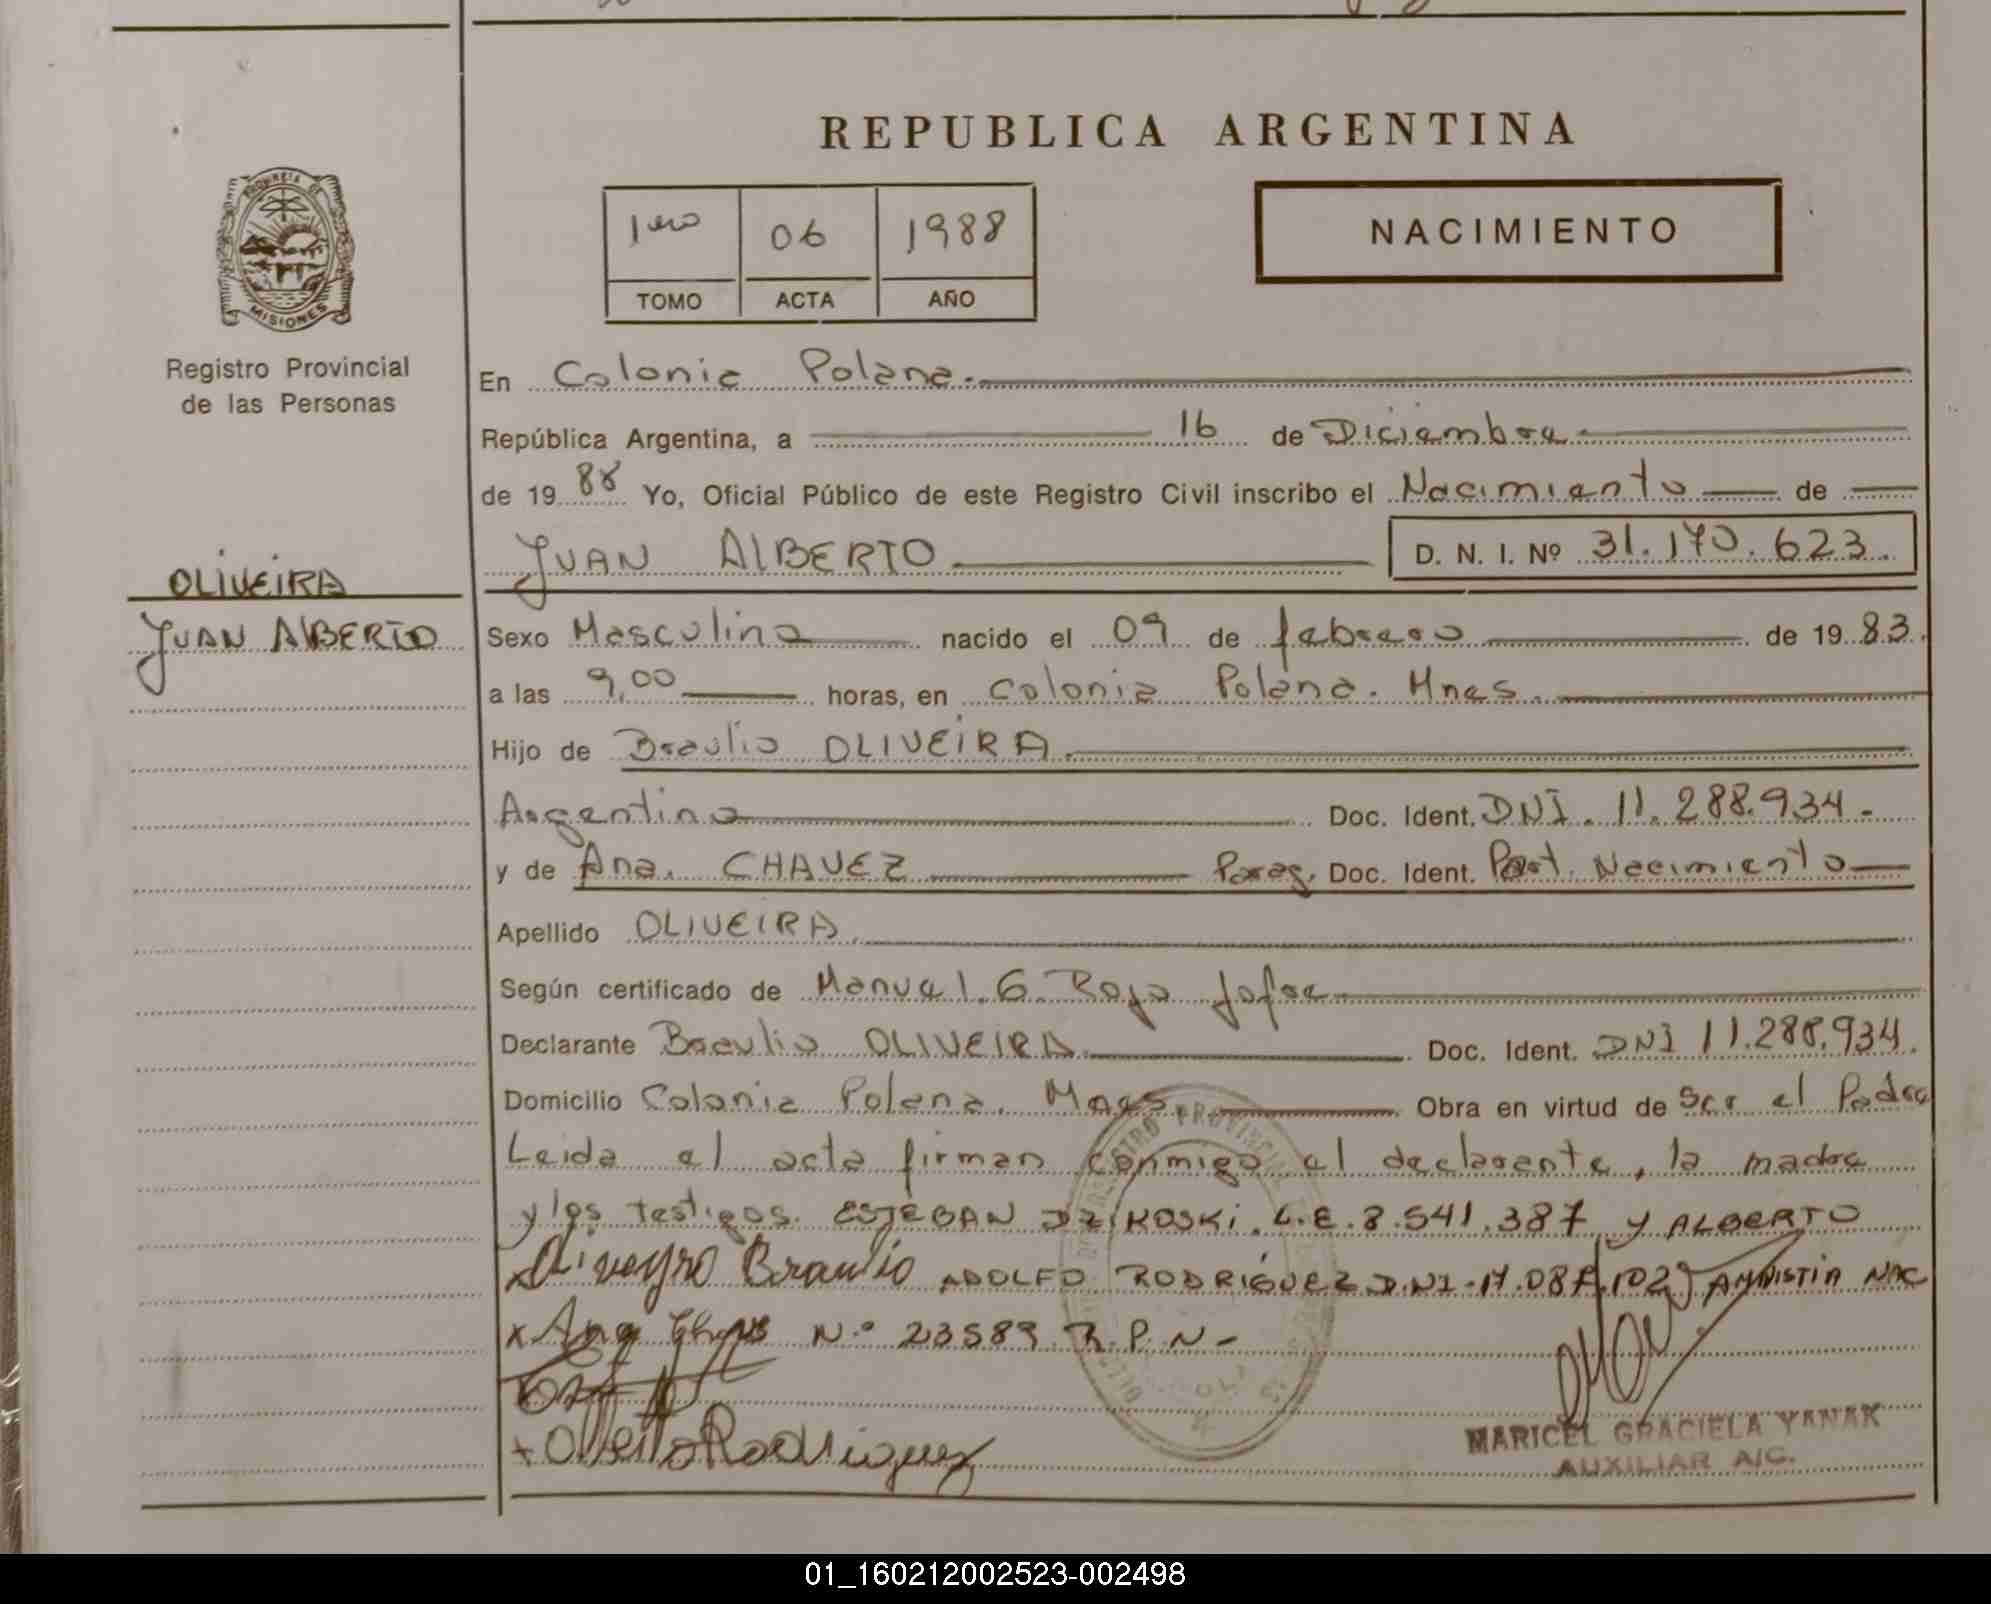 REPUBLICA ARGENTINA
1ero 06 1988
TOMO ACTA AÑO
NACIMIENTO
PROVINCIA DE
MISIONES
Registro Provincial
de las Personas
OLIVEIRA
JUAN ALBERTO
En Colonia Polana.
República Argentina, a 16 de Diciembre
de 19 88 Yo, Oficial Público de este Registro Civil inscribo el Nacimiento de
JUAN ALBERTO D. N. I. Nº 31.170.623.
Sexo Masculino nacido el 09 de febrero de 19 83.
a las 9,00 horas, en Colonia Polana. Mnes.
Hijo de Braulio OLIVEIRA.
Argentino Doc. Ident. DNI. 11.288.934.-
y de Ana. CHAVEZ Parag. Doc. Ident. Part. Nacimiento
Apellido OLIVEIRA.
Según certificado de Manual. G. Rojo Jofre
Declarante Braulio OLIVEIRA. Doc. Ident. DNI 11.288.934.
Domicilio Colonia Polana. Mnes. Obra en virtud de Ser el Padre
Leida el acta firman conmigo el declarante, la madre
y los testigos. ESTEBAN DZIKOSKI. L.E. 8.541.387 y ALBERTO
Oliveyro Braulio ADOLFO RODRIGUEZ D.NI. 17.087.102 AMNISTIA NAC
x Ana N.º 23589 R.P.N-
+ Alberto Rodriguez
MARICEL GRACIELA YANAK
AUXILIAR A/C.
01_160212002523-002498